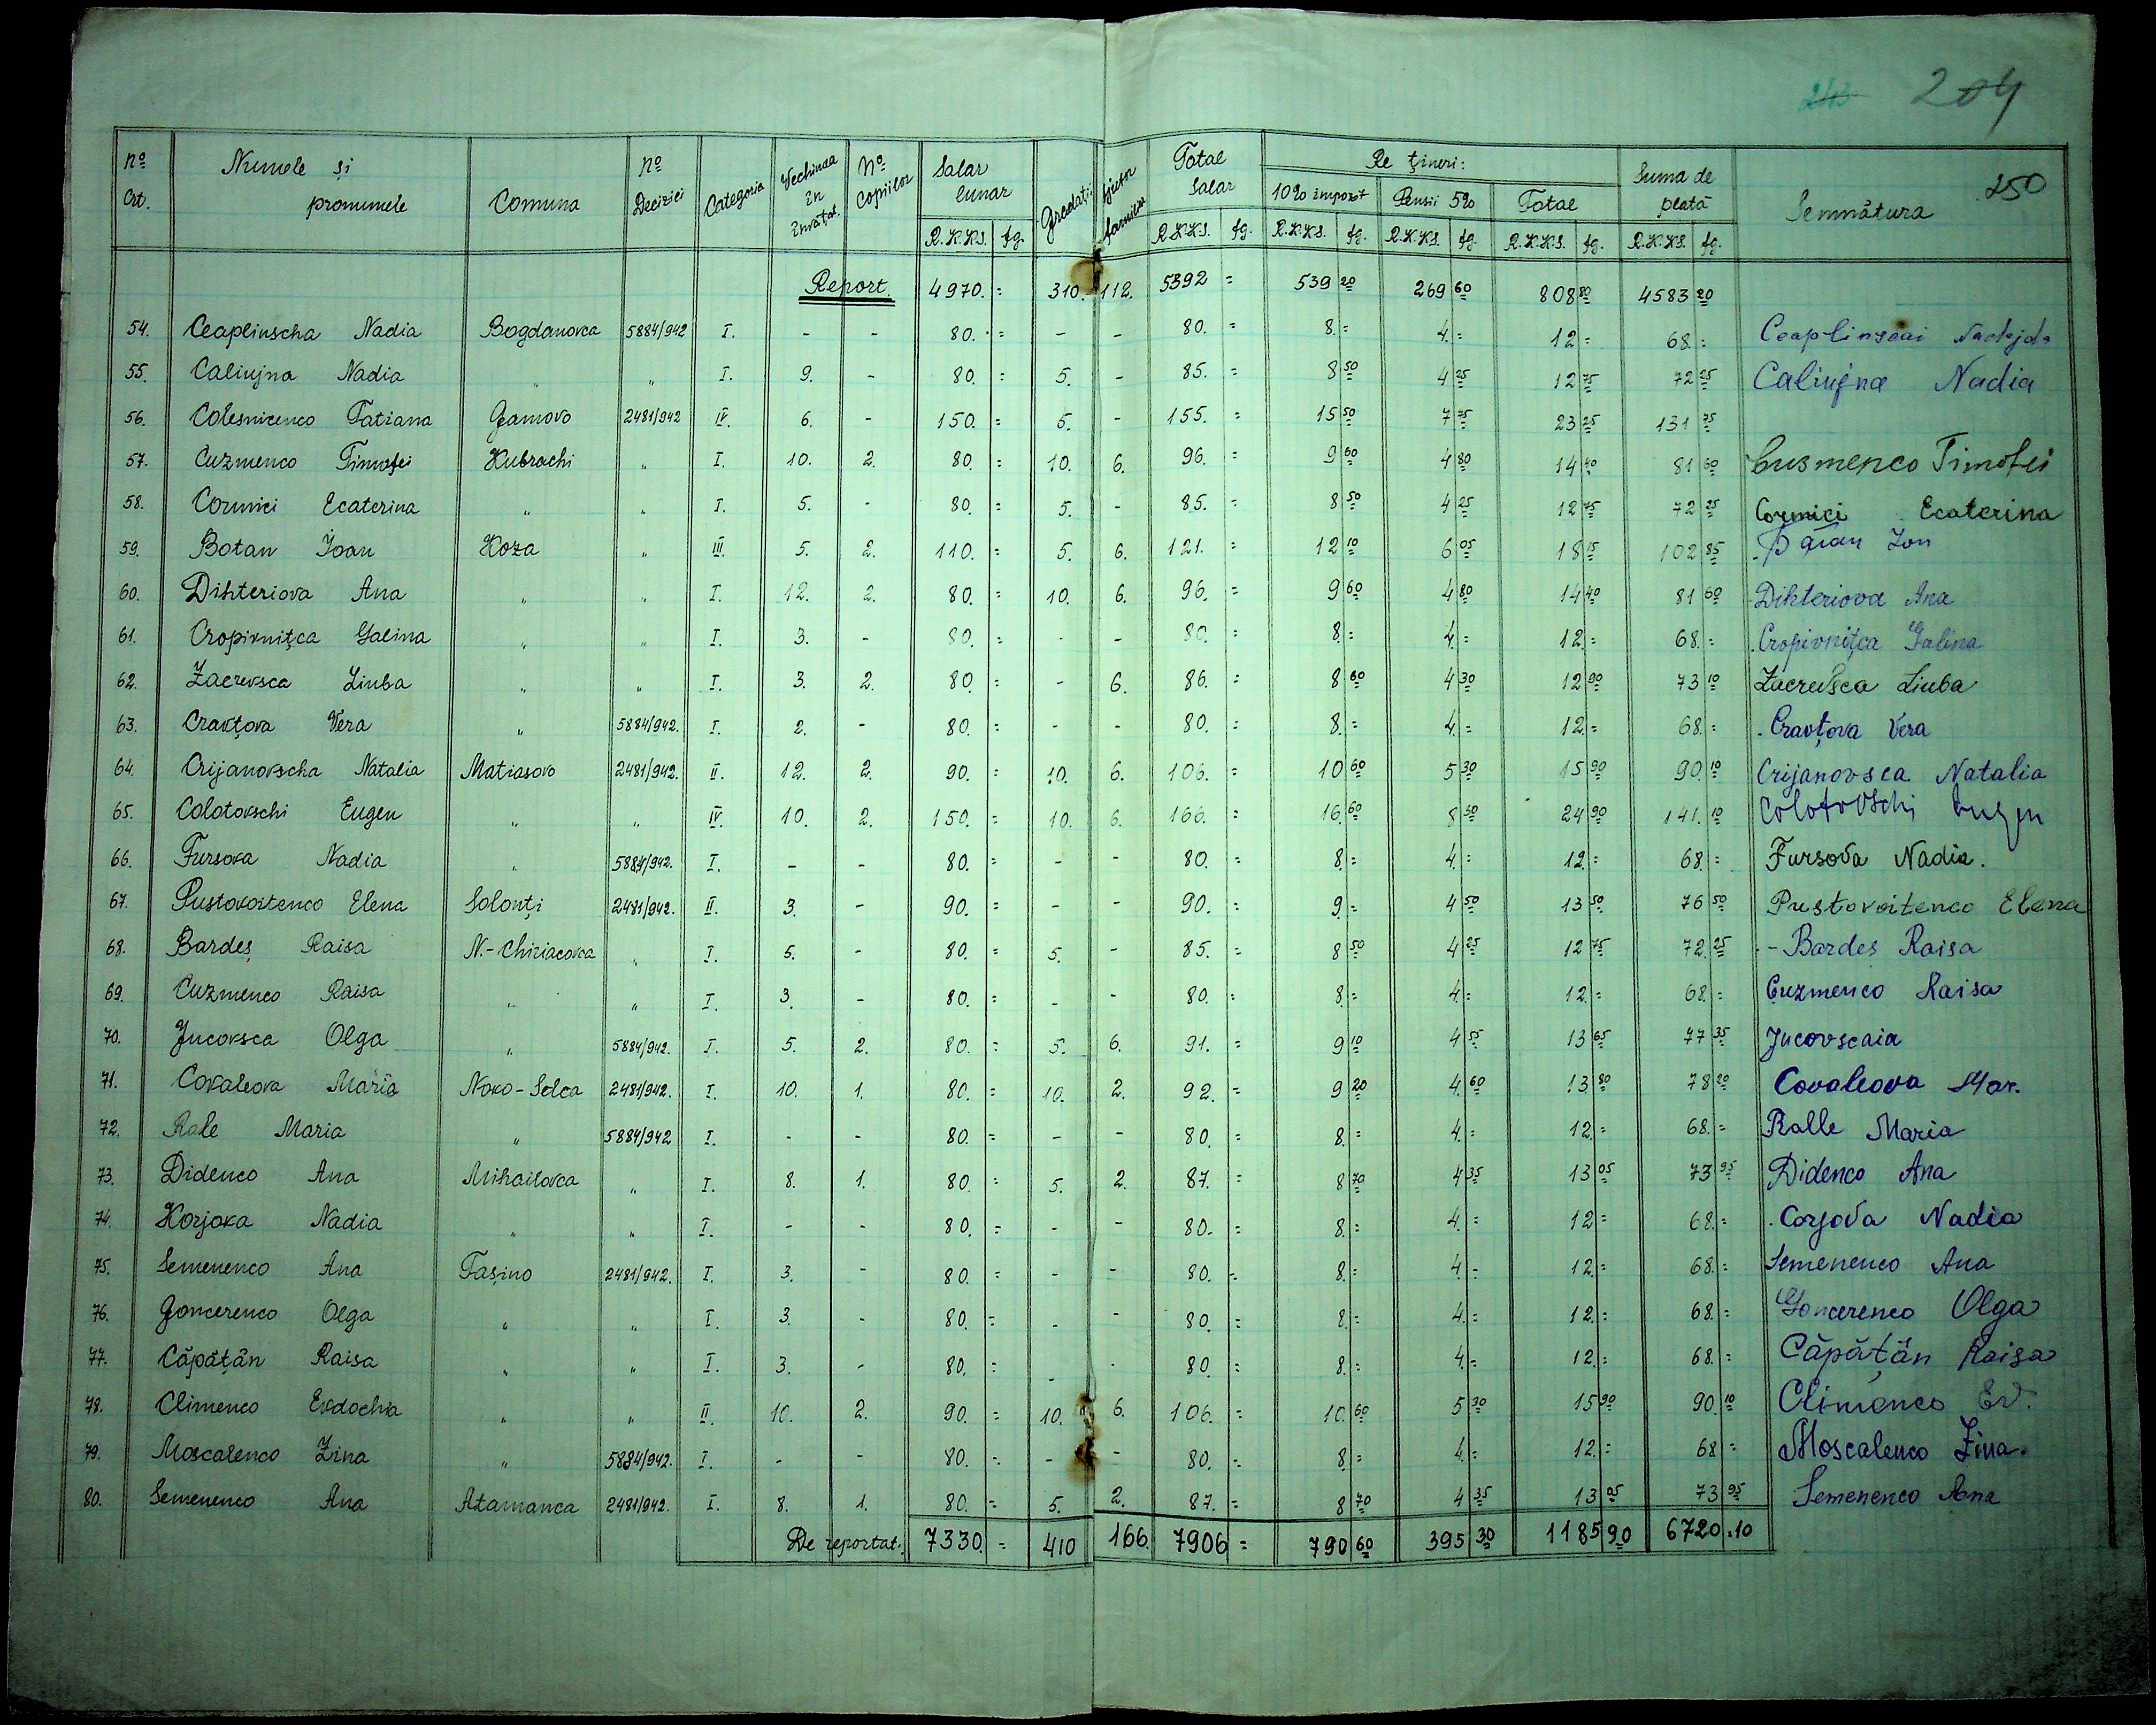 243 204
Nº Crt. Numele și pronumele Comuna Nº Deciziei Categoria Vechimea în învățat. Nº Copiilor Salar lunar Gradații Ajutor familiar Total Salar Rețineri: Suma de plată Semnătura 250
10% impozit Pensii 5% Total
R.K.KS. fg. R.K.KS. fg. R.K.KS. fg. R.K.KS. fg. R.K.KS. fg. R.K.KS. fg.
Report. 4970. = 310. 112. 5392 = 539 20 269 60 808 80 4583 20
54. Ceaplinscha Nadia Bogdanovca 5884/942 I. - - 80. = - - 80. = 8. = 4. = 12 = 68. = Ceaplinscai Nadejda
55. Caliujna Nadia " " I. 9. - 80. = 5. - 85. = 8 50 4 25 12 75 72 25 Caliujna Nadia
56. Colesnicenco Tatiana Gamovo 2481/942 IV. 6. - 150. = 5. - 155. = 15 50 7 75 23 25 131 75
57. Cuzmenco Timofei Kubrachi " I. 10. 2. 80. = 10. 6. 96. = 9 60 4 80 14 40 81 60 Cusmenco Timofei
58. Cormici Ecaterina " " I. 5. - 80. = 5. - 85. = 8 50 4 25 12 75 72 25 Cormici Ecaterina
59. Botan Ioan Koza " III. 5. 2. 110. = 5. 6. 121. = 12 10 6 05 18 15 102 85 Ion
60. Dihteriova Ana " " I. 12. 2. 80. = 10. 6. 96. = 9 60 4 80 14 40 81 60 Dihteriova Ana
61. Cropivnițca Galina " " I. 3. - 80. = - - 80. = 8. = 4. = 12. = 68. = Cropivnițca Galina
62. Zacrevsca Liuba " " I. 3. 2. 80. = - 6. 86. = 8 60 4 30 12 90 73 10 Zacrevsca Liuba
63. Cravțova Vera " 5884/942. I. 2. - 80. = - - 80. = 8. = 4. = 12. = 68. = Cravțova Vera
64. Crijanovscha Natalia Matiasovo 2481/942. II. 12. 2. 90. = 10. 6. 106. = 10 60 5 30 15 90 90. 10 Crijanovsca Natalia
65. Colotovschi Eugen " " IV. 10. 2. 150. = 10. 6. 166. = 16. 60 8 30 24 90 141. 10 Colotovschi Eugen
66. Fursova Nadia " 5884/942. I. - - 80. = - - 80. = 8. = 4. = 12. = 68. = Fursova Nadia.
67. Pustovoitenco Elena Solonți 2481/942. II. 3. - 90. = - - 90. = 9. = 4 50 13 50 76 50 Pustovoitenco Elena
68. Bardeș Raisa N.-Chiriacovca " I. 5. - 80. = 5. - 85. = 8 50 4 25 12 75 72. 25 - Bardes Raisa
69. Cuzmenco Raisa " " I. 3. - 80. = - - 80. = 8. = 4. = 12. = 68. = Cuzmenco Raisa
70. Jucovsca Olga " 5884/942. I. 5. 2. 80. = 5. 6. 91. = 9 10 4 55 13 65 77 35 Jucovscaia
71. Covaleova Maria Novo-Selca 2481/942. I. 10. 1. 80. = 10. 2. 92. = 9 20 4. 60 13. 80 78 20 Covaleova Mar.
72. Rale Maria " 5884/942 I. - - 80. = - - 80. = 8. = 4. = 12. = 68. = Ralle Maria
73. Didenco Ana Mihailovca " I. 8. 1. 80. = 5. 2. 87. = 8 70 4 35 13 05 73 95 Didenco Ana
74. Korjova Nadia " " I. - - 80. = - - 80. = 8. = 4. = 12 = 68. = Corjova Nadia
75. Semenenco Ana Tașino 2481/942. I. 3. - 80. = - - 80. = 8. = 4. = 12. = 68. = Semenenco Ana
76. Goncerenco Olga " " I. 3. - 80. = - - 80. = 8. = 4. = 12. = 68. = Goncerenco Olga
77. Căpățân Raisa " " I. 3. - 80. = - - 80. = 8. = 4. = 12. = 68. = Căpățân Raisa
78. Climenco Evdochia " " II. 10. 2. 90. = 10. 6. 106. = 10. 60 5 30 15 90 90. 10 Climenco Ev.
79. Moscalenco Zina " 5884/942. I. - - 80. = - - 80. = 8. = 4. = 12. = 68 = Moscalenco Zina.
80. Semenenco Ana Atamanca 2481/942. I. 8. 1. 80. = 5. 2. 87. = 8 70 4 35 13 05 73 95 Semenenco Ana
De reportat. 7330. = 410 166. 7906 = 790 60 395 30 1185 90 6720.10